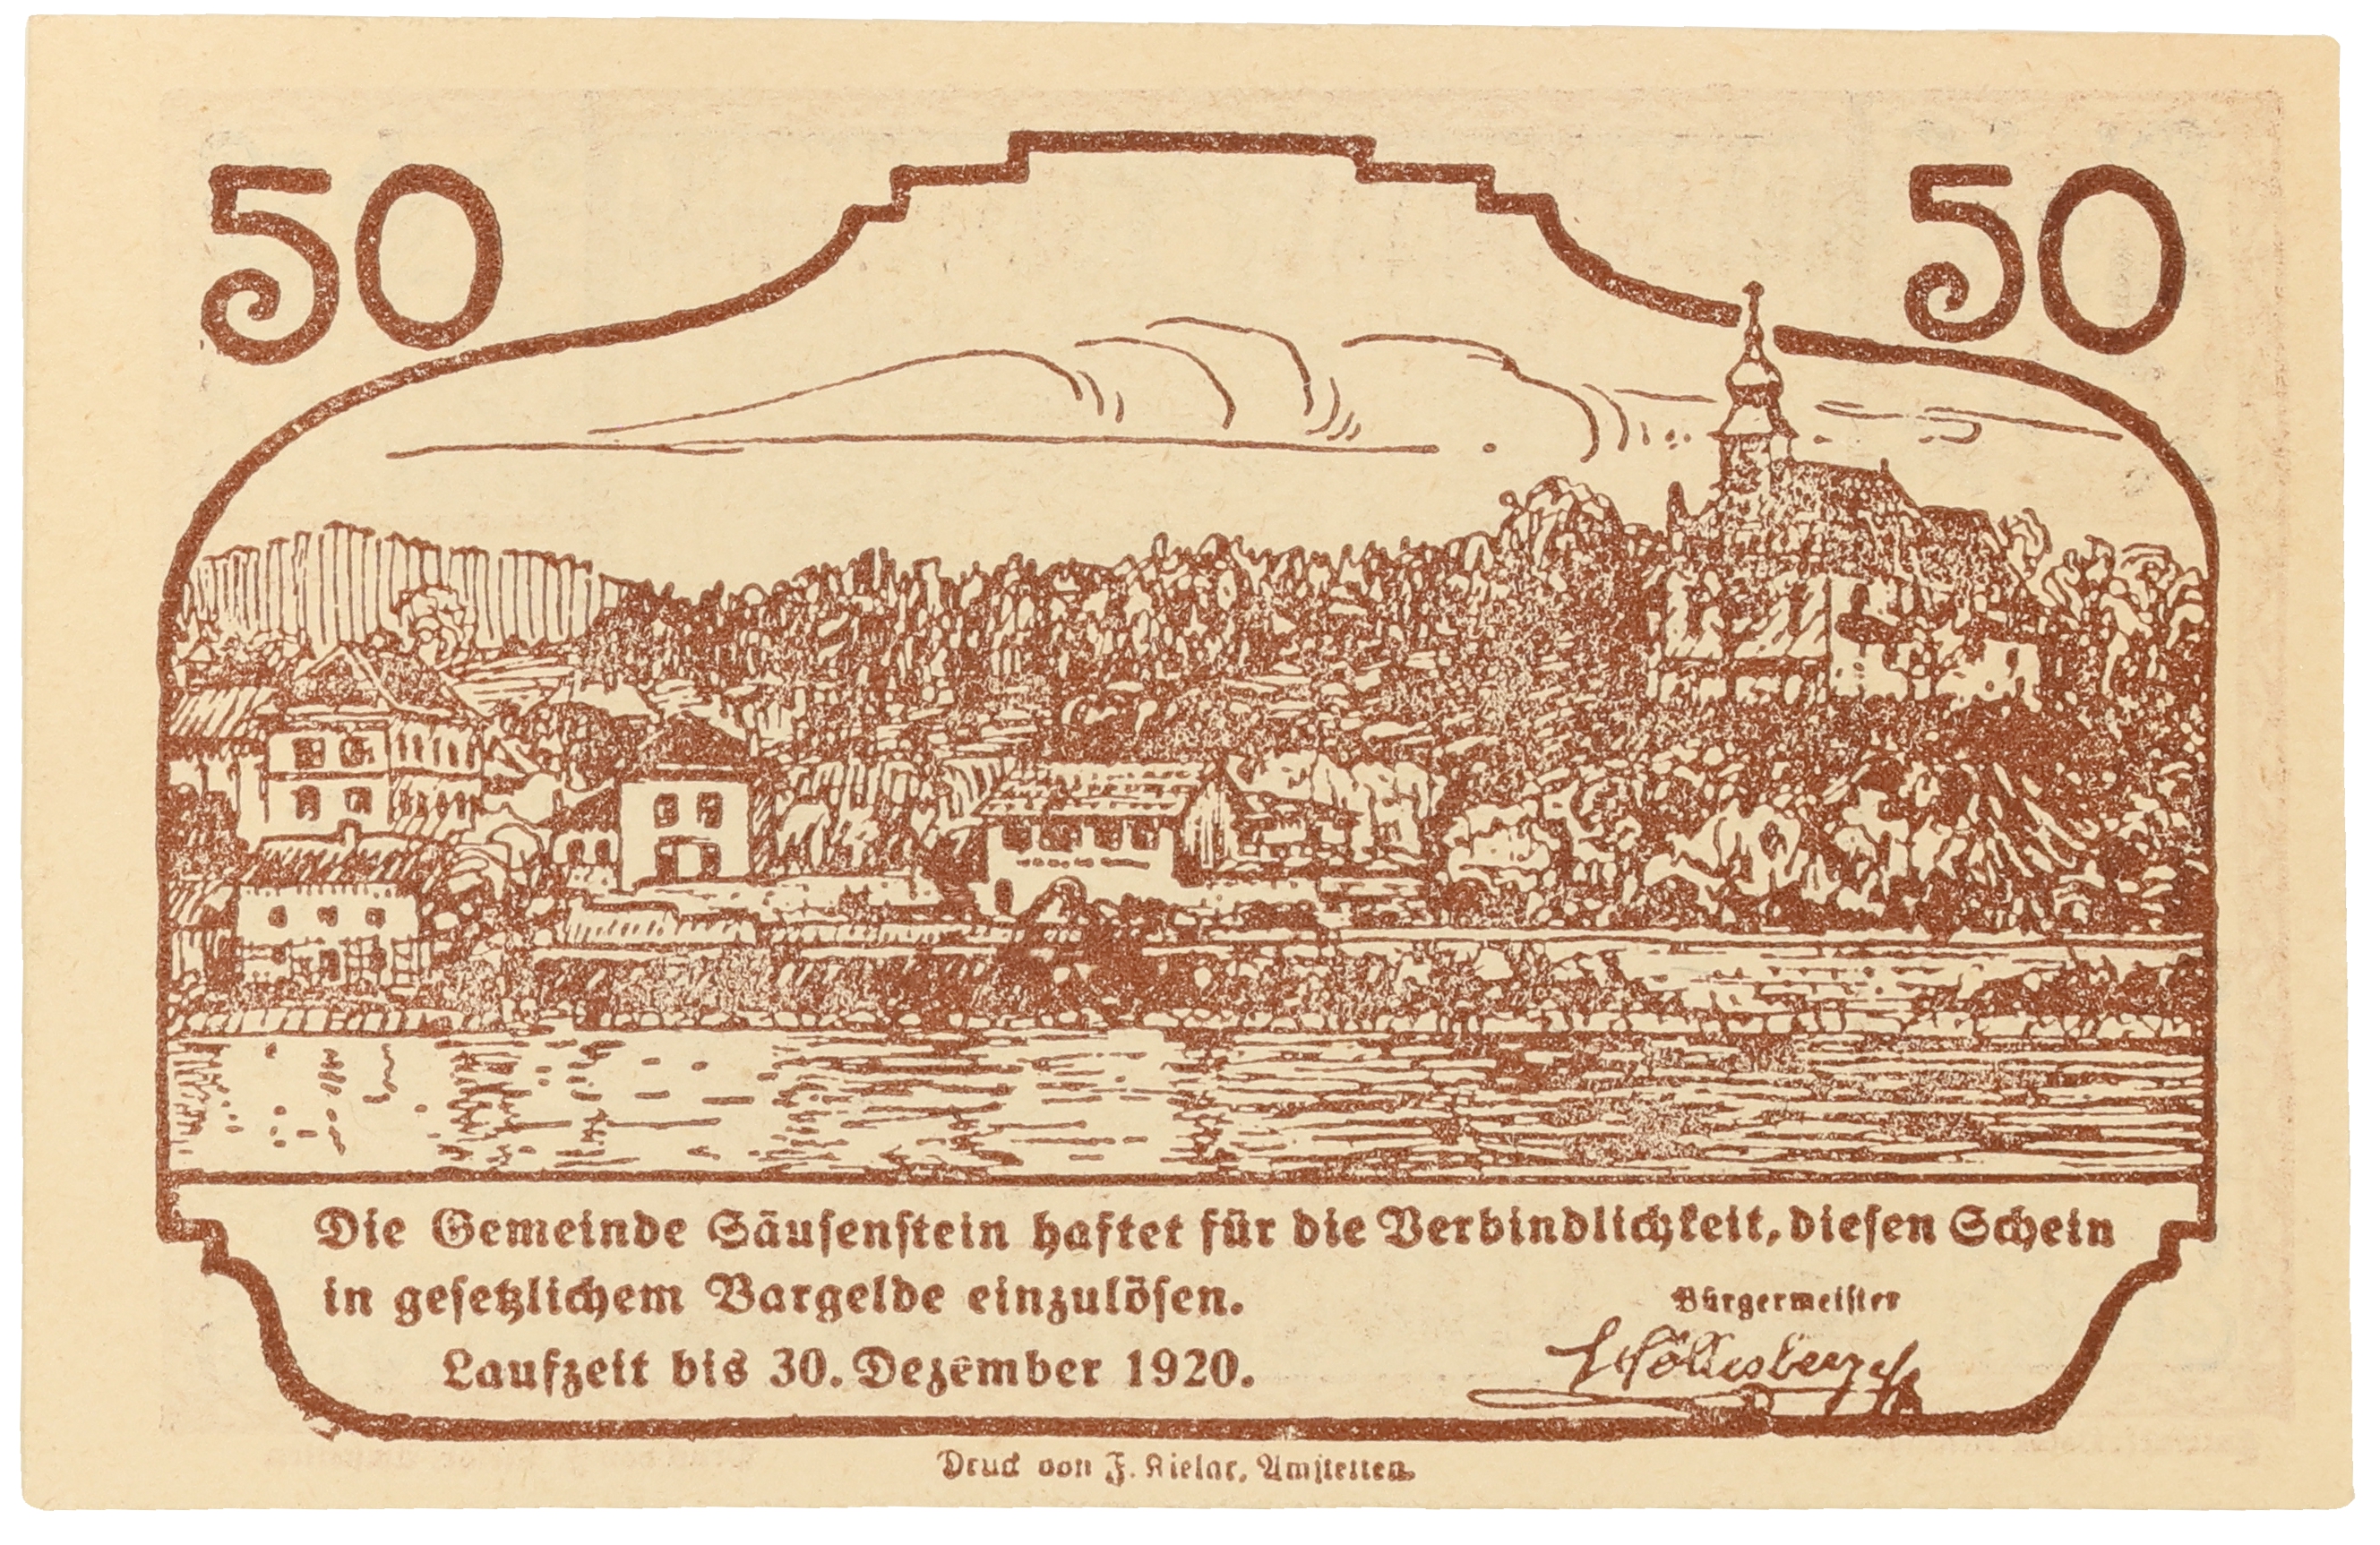 50
50
Die Gemeinde Säusenstein haftet für die Verbindlichkeit, diesen Schein
in gesetzlichem Bargelde einzulösen.
Bürgermeister
Laufzeit bis 30. Dezember 1920.
Druck von J. Kielar, Amstetten.